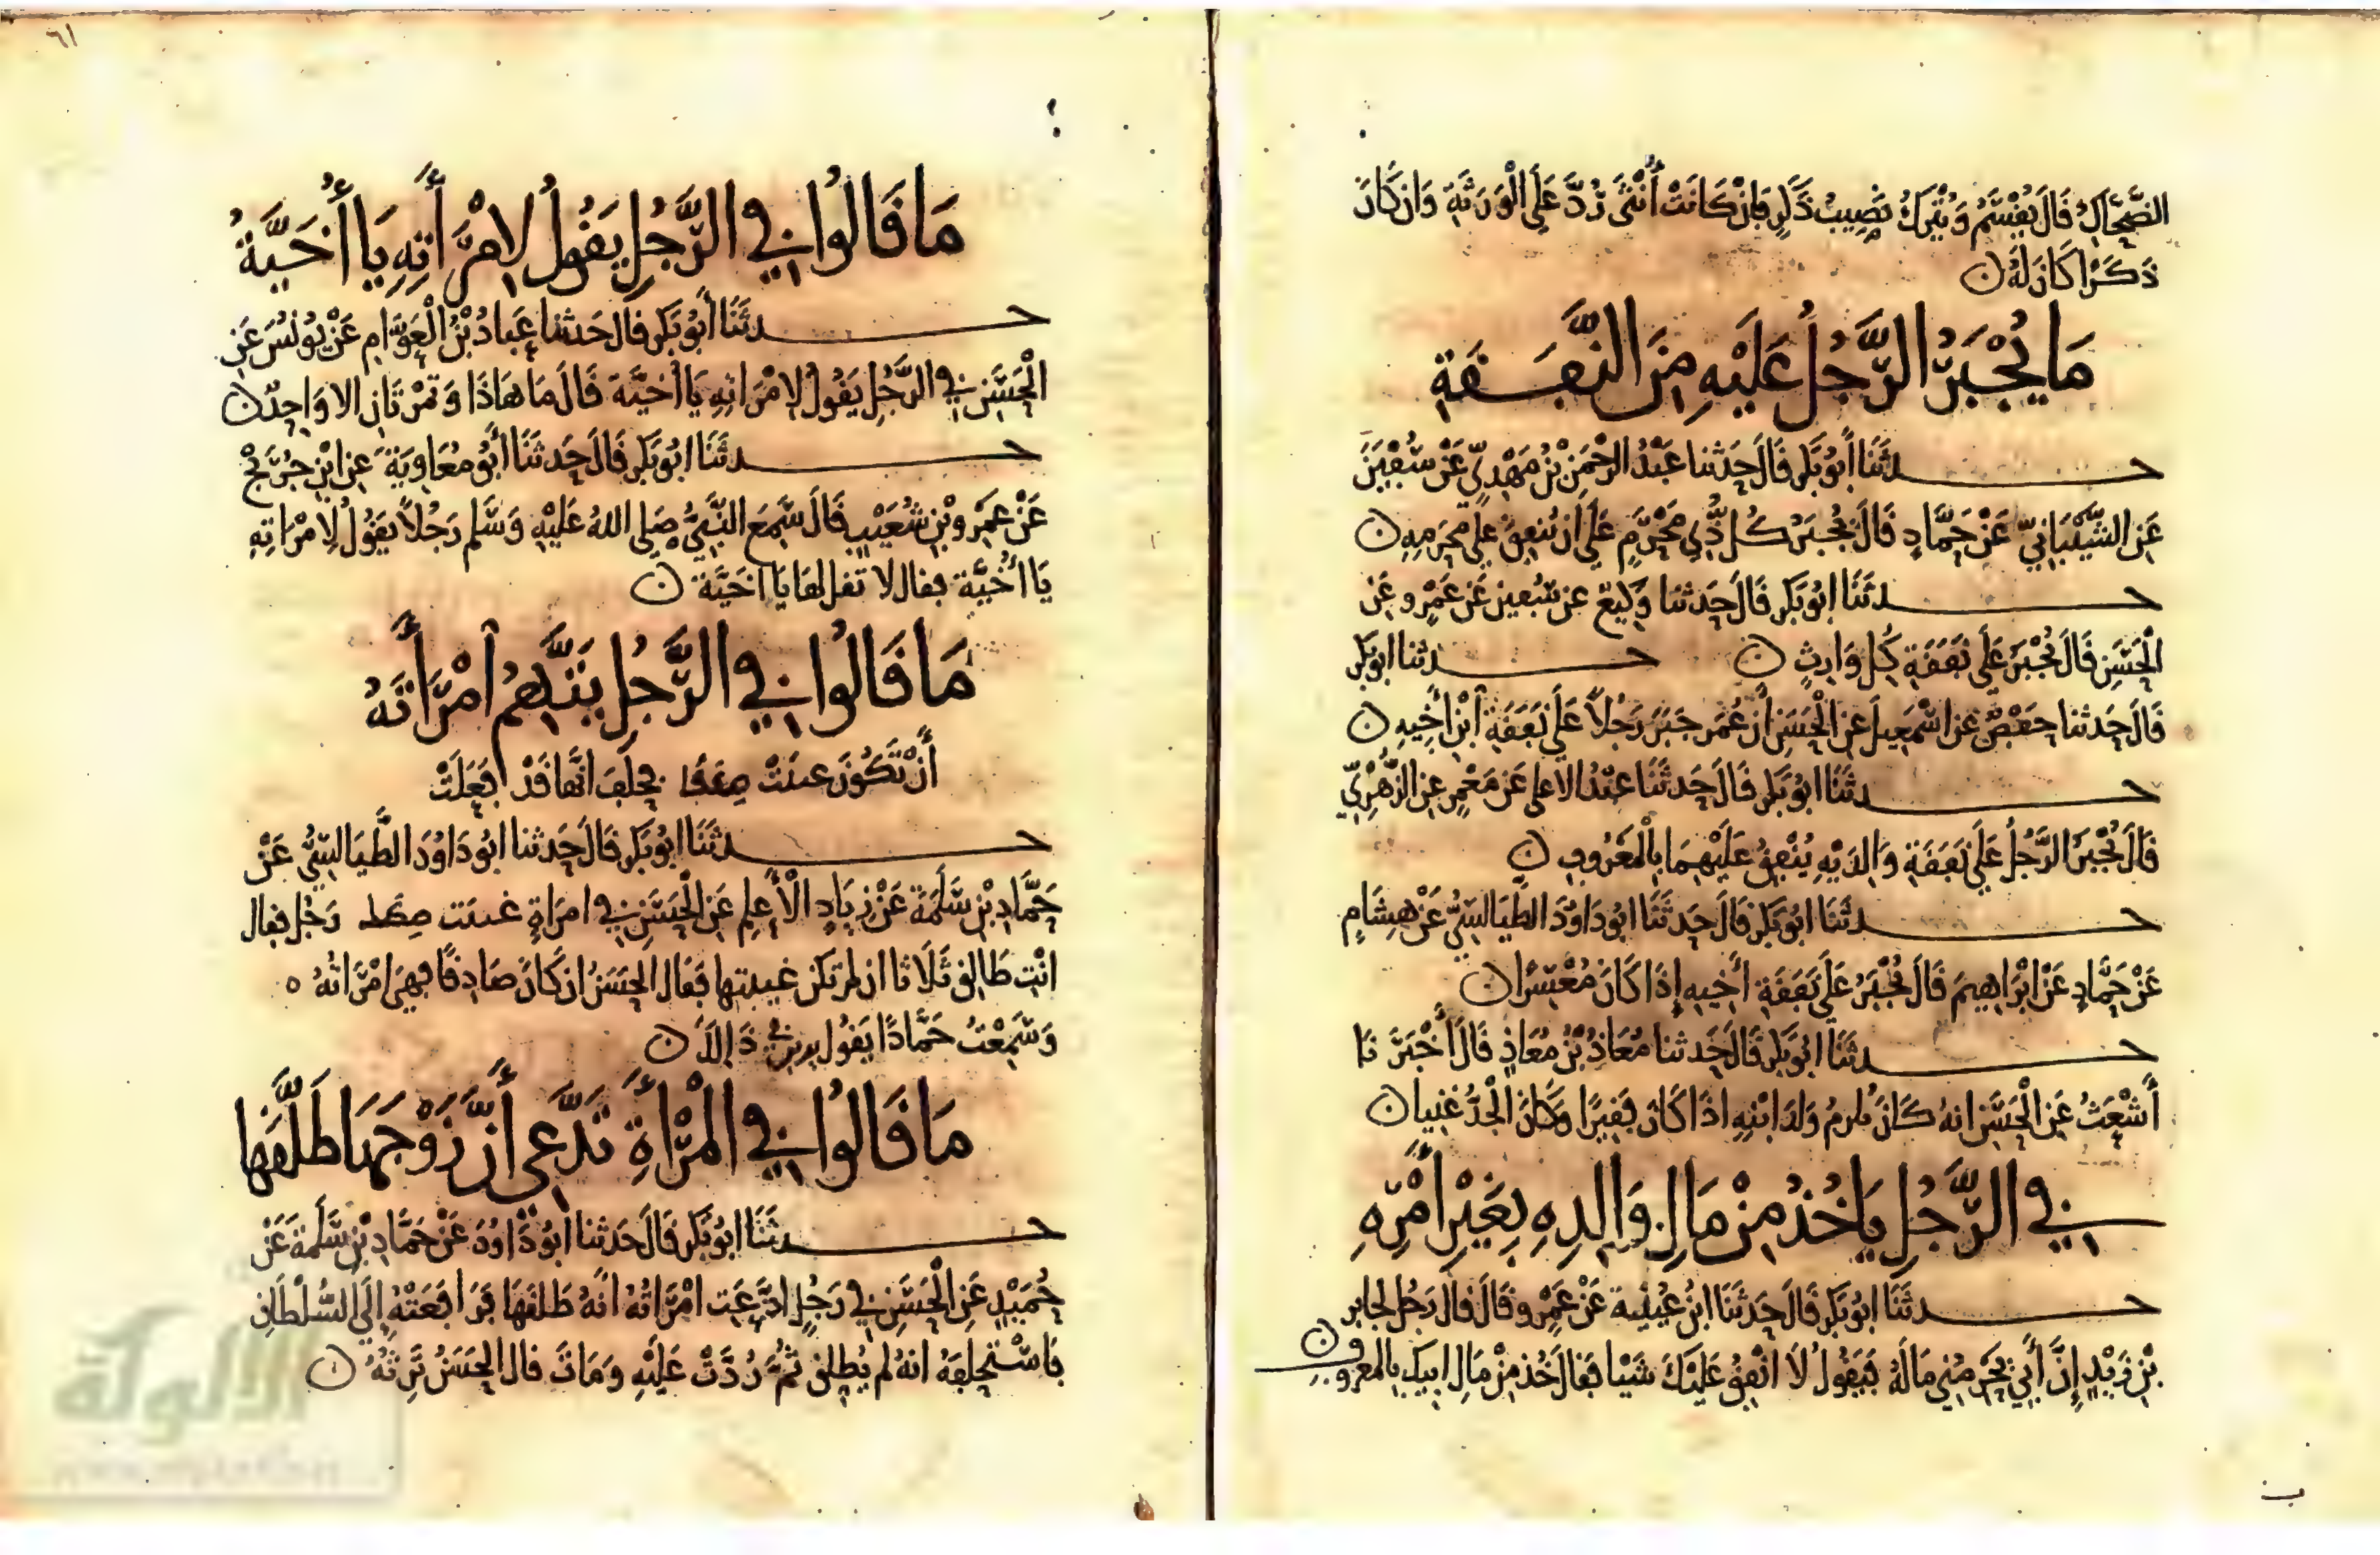 الضَّحَّاكِ قَالَ يُقْسَمُ وَيُتْرَكُ نَصِيبُ ذَكَرٍ فَإِنْ كَانَتْ أُنْثَى رُدَّ عَلَى الْوَرَثَةِ وَإِن كَانَ
ذَكَرًا كَانَ لَهُ
مَا يُجْبَرُ الرَّجُلُ عَلَيْهِ مِنَ النَّفَقَةِ
حدثَنَا أَبُو بَكْرٍ قَالَ حَدثنا عَبْدُ الرَّحْمَنِ بْنُ مَهْدِيٍّ عَنْ سُفْيَنَ
عَنِ الشَّيْبَانِيِّ عَنْ حَمَّادٍ قَالَ يُجْبَرُ كُل ذِي مَحْرَمٍ عَلَى أن يُنفِقَ عَلَى محَرمِهِ
حدثَنَا ابُو بَكْرٍ قَالَ حَدثنا وَكِيعٌ عن سُفين عَن عَمْرٍو عَنِ
الْحَسَنِ قَالَ يُجْبَرُ عَلَى نَفَقَةِ كُل وَارِثٍ حدثنا ابو بكر
قَالَ حَدثنا حَفْصٌ عن اسْمَعِيلَ عَنِ الْحَسَنِ أن عُمَر جَبَرَ رَجُلاً عَلَى نَفَقَةِ ابْنِ أَخِيهِ
حدثَنَا ابُو بَكْرٍ قَالَ حَدثَنَا عَبْدُ الاعلى عَن مَعْمَرٍ عَنِ الزُّهْرِيِّ
قَالَ يُجْبَرُ الرَّجُلُ عَلَى نَفَقَةِ وَالِدَيْهِ يُنْفِقُ عَلَيْهِمَا بِالْمَعْرُوفِ
حدثَنَا ابُو بَكْرٍ قَالَ حَدثَنَا ابُو دَاوُدَ الطَّيَالِسِيُّ عَنْ هِشَامٍ
عَنْ حَمَّادٍ عَنْ ابْرَاهِيمَ قَالَ يُجْبَرُ عَلَى نَفَقَةِ أَخِيهِ إِذَا كَانَ مُعْسِرًا
حدثَنَا ابُو بَكْرٍ قَالَ حَدثنا مُعَاذُ بْنُ مُعَاذٍ قَالَ أَخْبَرَنَا
أَشْعَثُ عَنِ الْحَسَنِ انهُ كَانَ يلزمُ وَلَدَ ابْنِهِ اذَا كَانَ فَقِيرًا وَكَانَ الْجَدُّ غَنِيا
فِي الرَّجُلِ يَاخُذُ مِنْ مَالِ وَالِدِهِ بِغَيْرِ أَمْرِهِ
حدثَنَا ابُو بَكْرٍ قَالَ حَدثَنَا ابنُ عُيَيْنِة عَنْ عَمْرٍو قَالَ قال رَجُل لجابر
بْنِ زَيْدٍ إِنَّ أَبِي يَحْرِمُنِي مَالَهُ فَيَقُولُ لَا انْفِقُ عَلَيْكَ شَيْا فَقَالَ خُذ مِنْ مَالِ ابِيكَ بِالمعروف
ب
٦١
مَا قَالُوا فِي الرَّجُلِ يَقُولُ لِامْرَأَتِهِ يَا أُخَيَّةُ
حدثَنَا أَبُو بَكْرٍ قَالَ حَدثنا عَبادُ بْنُ الْعَوَّامِ عَنْ يُونُسَ عَنِ
الْحَسَنِ فِي الرَّجُلِ يَقُولُ لِامْرَاتِهِ يَا أُخَيَّة قَالَ مَا هَاذَا وَتَمْرَتَانِ الا وَاحِدٌ
حدثَنَا ابُو بَكْرٍ قَالَ حَدثَنَا أَبُو مُعَاوِيَةَ عنِ ابْنِ جُرَيْجٍ
عَنْ عَمْرِو بْنِ شُعَيْبٍ قَالَ سَمِعَ النَّبِيُّ صَلى اللهُ عَلَيْهِ وَسَلم رَجُلاً يَقُولُ لِامْرَاتِهِ
يَا أُخَيَّة فقال لا تقل لها يَا اخَيَّة
مَا قَالُوا فِي الرَّجُلِ يَتَّهِمُ امْرَأَتَهُ
أَنْ تَكُونَ غيبَتْ فَيَحلِف انَّها قَدْ فَعَلَتْ
حدثَنَا ابُو بَكْرٍ قَالَ حَدثنا ابُو دَاوُدَ الطَّيَالِسِيُّ عَنْ
حَمَّادِ بْنِ سَلَمَة عَنْ زِيَادٍ الْأَعلَمِ عَنِ الْحَسَنِ فِي امرَاةٍ غيبت رَجُل فقال
انْتِ طَالِق ثَلَاثا ان لم تكن غيبتها فَقَال الحَسَنُ ان كَانَ صَادِقًا فهِيَ امْرَاتُهُ
وَسَمِعْتُ حَمَّادًا يَقُول
مَا قَالُوا فِي الْمَرْأَةِ تَدَّعِي أَنَّ زَوْجَهَا طَلَّقَهَا
حدثَنَا ابُو بَكْرٍ قَالَ حَدثنا ابُو دَاوُدَ عَنْ حَمَّادِ بْنِ سَلَمَة عَنْ
حُمَيْدٍ عَنِ الْحَسَنِ فِي رَجُلٍ ادَّعَت امْرَاتُهُ انَّهُ طَلقَهَا فَرَافَعَتْهُ إِلَى السُّلْطَانِ
فَاسْتَحلَفهُ انهُ لم يُطلق ثُمَّ رُدَّتْ عَلَيْهِ وَمَاتَ قال الحَسَنُ تَرِثهُ